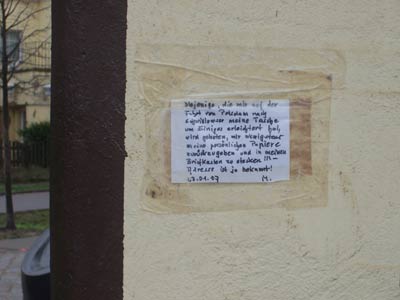 Diejenige, die mir auf der
Fahrt von Potsdam nach
meine Tasche
um Einiges erleichtert hat,
wird gebeten, mir wenigstens
meine persönlichen Papiere
zurückzugeben und in meinen
Briefkasten zu stecken
Adresse ist ja bekannt!
03.01.07 M.